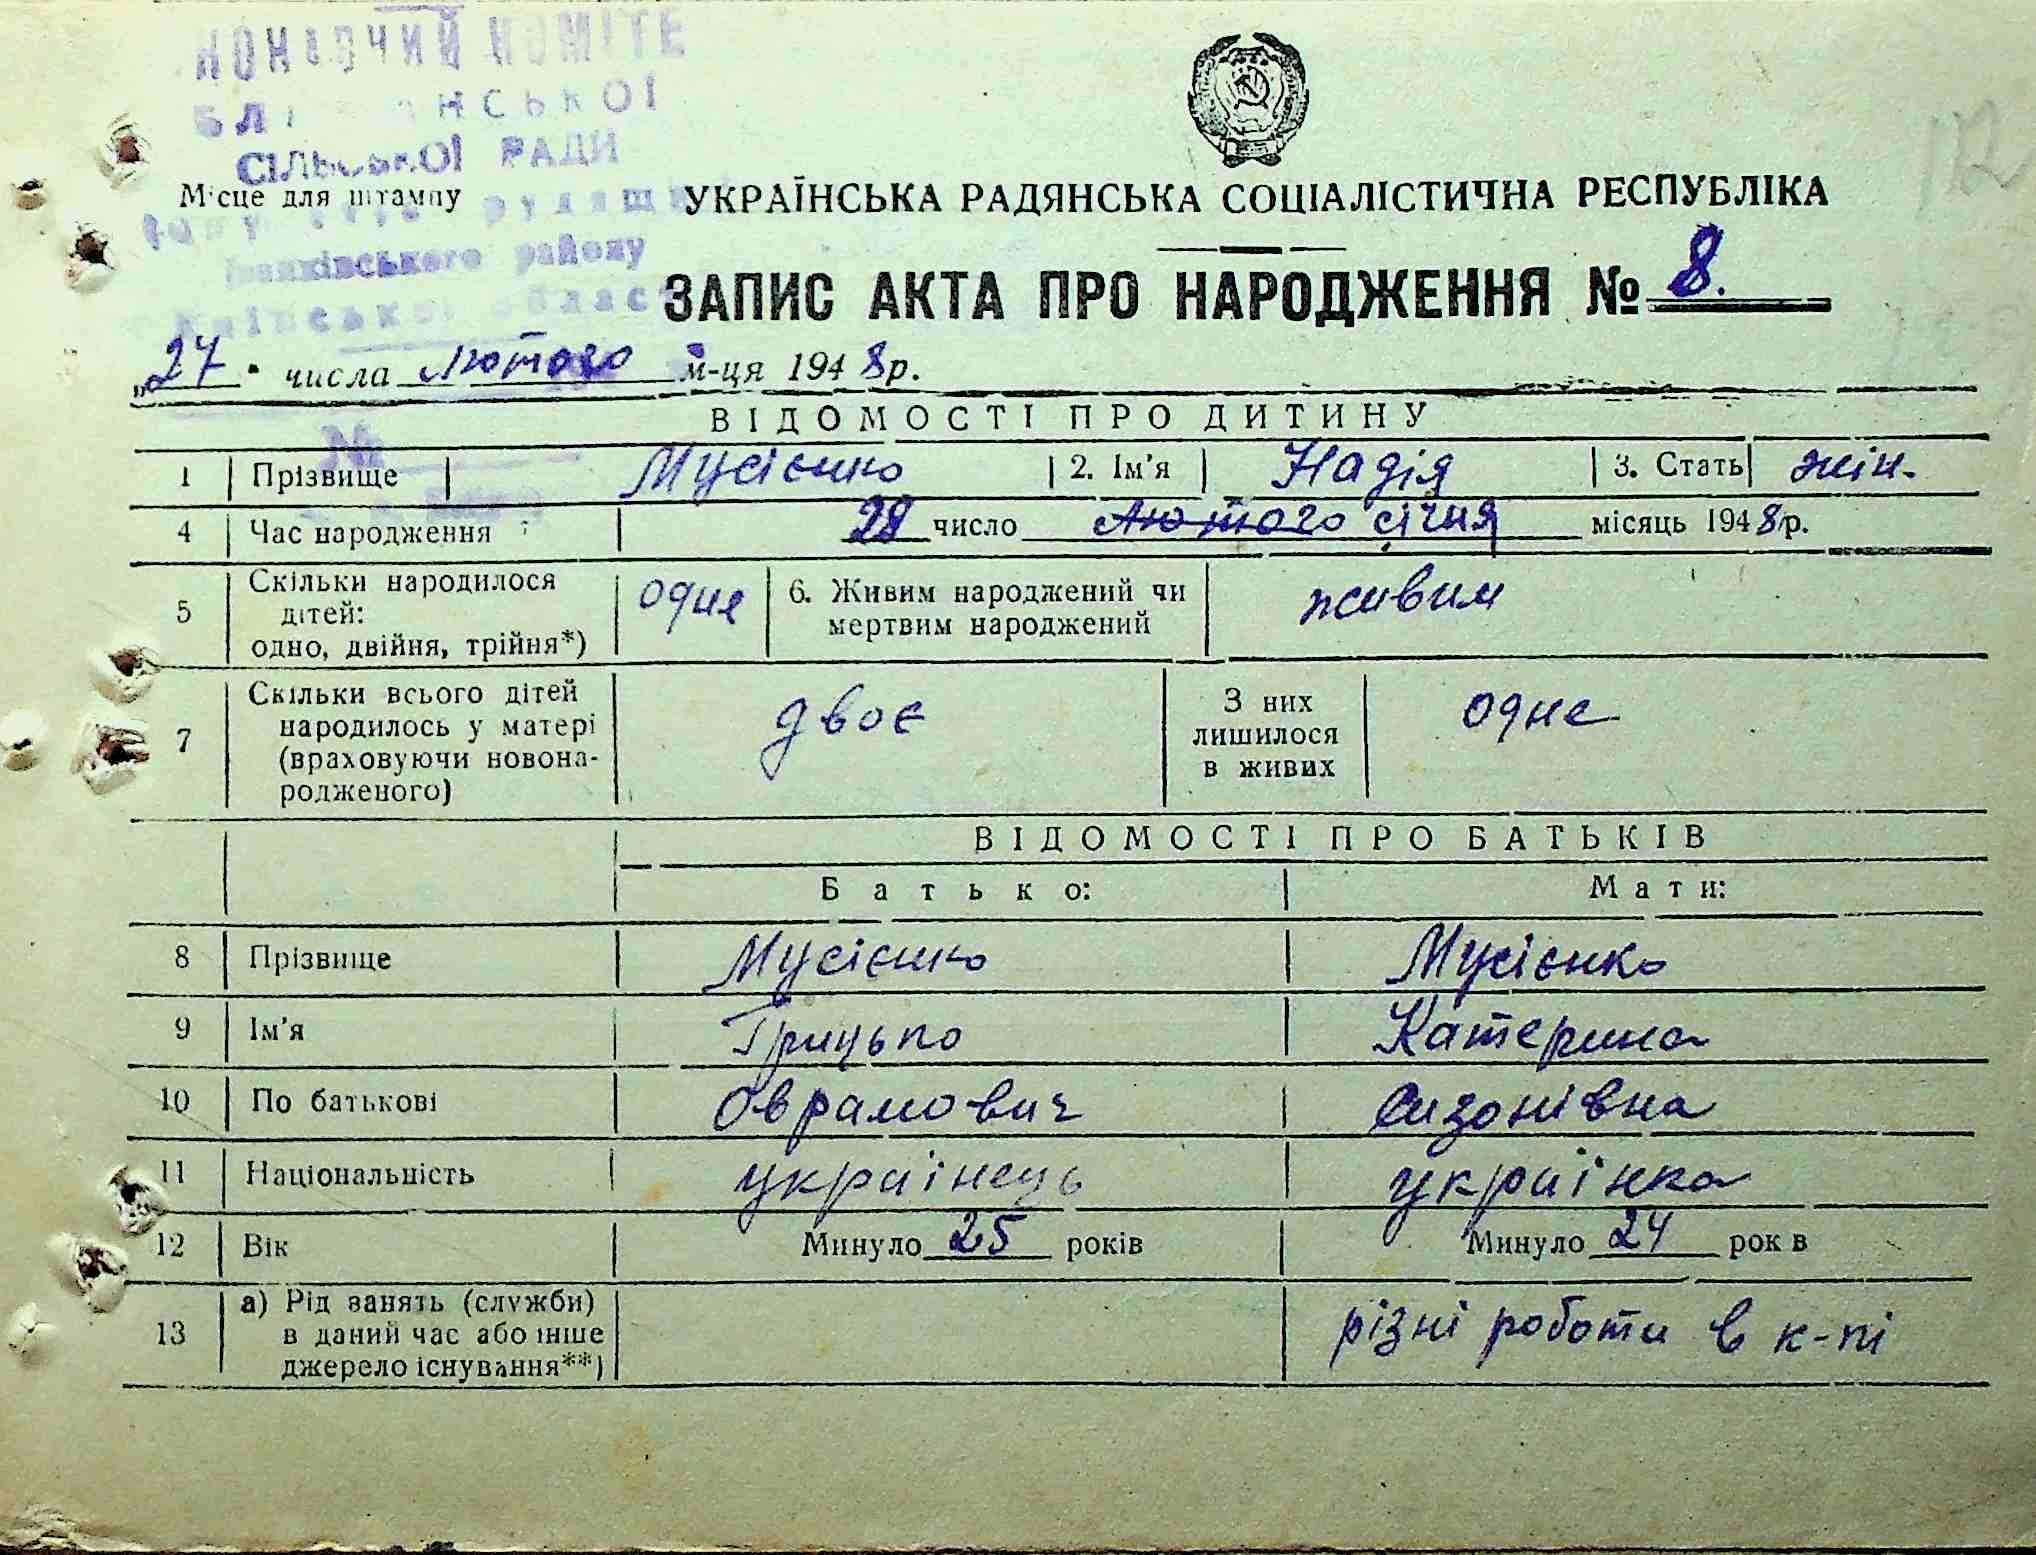 СІЛЬСЬКОЇ РАДИ
Місце для штампу
району
УКРАЇНСЬКА РАДЯНСЬКА СОЦІАЛІСТИЧНА РЕСПУБЛІКА
ЗАПИС АКТА ПРО НАРОДЖЕННЯ № 8.
„27" числа лютого м-ця 1948 р.
ВІДОМОСТІ ПРО ДИТИНУ
1 Прізвище Мусієнко 2. Ім'я Надія 3. Стать жін.
4 Час народження 28 число лютого січня місяць 1948 р.
5 Скільки народилося
дітей:
одно, двійня, трійня*)
одне
6. Живим народжений чи
мертвим народжений
живим
7 Скільки всього дітей
народилось у матері
(враховуючи новона-
родженого)
двоє
З них
лишилося
в живих
одне
ВІДОМОСТІ ПРО БАТЬКІВ
Батько: Мати:
8 Прізвище Мусієнко Мусієнко
9 Ім'я Грицько Катерина
10 По батькові Оврамович Сизонівна
11 Національність українець українка
12 Вік Минуло 25 років Минуло 24 рок в
13 а) Рід занять (служби)
в даний час або інше
джерело існування**)
різні роботи в к-пі